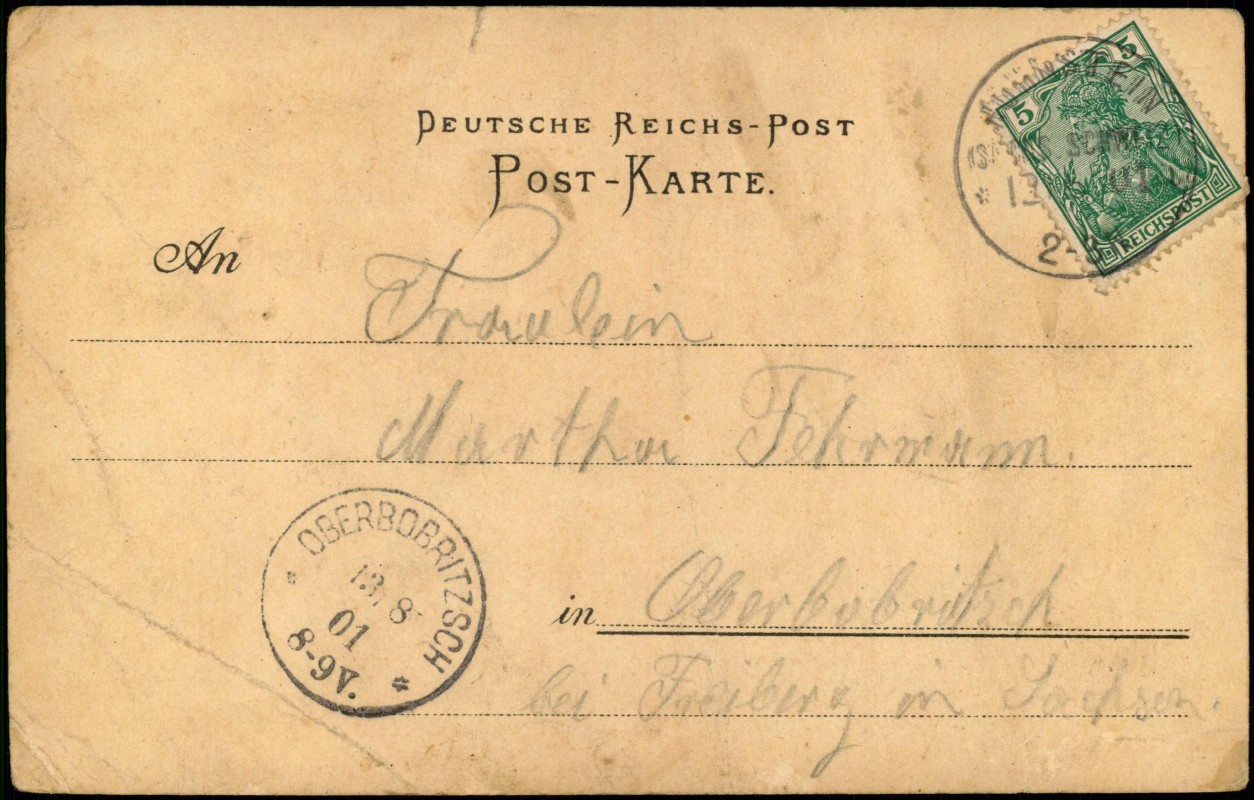 DEUTSCHE REICHS-POST
POST-KARTE.
5
5
REICHSPOST
STEIN
SCHWEIZ
13 01
2-3
An
Fräulein
Martha Fehrmann.
in Oberbobritzsch
bei Freiberg in Sachsen.
OBERBOBRITZSCH
13 8
01
8-9V.